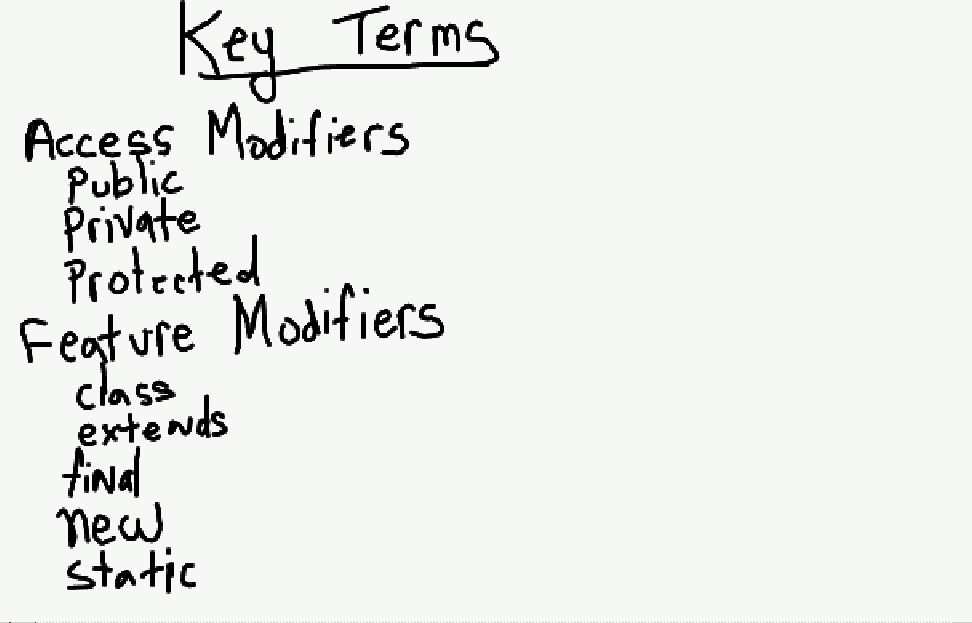 Key Terms
Access Modifiers
Public
Private
Protected
Feature Modifiers
class
extends
final
new
static